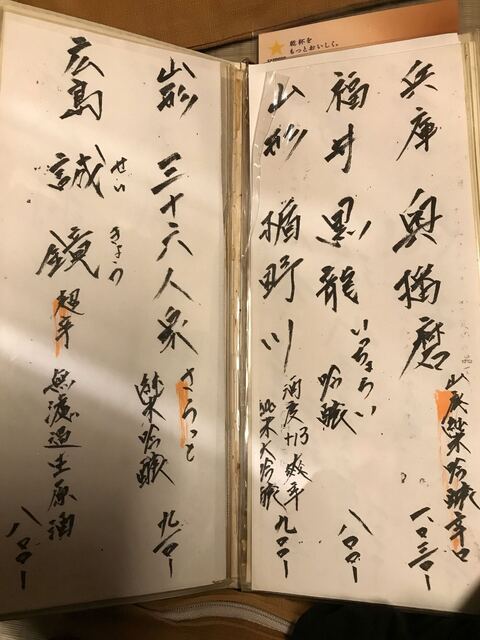 乾杯を
もっとおいしく。
兵庫 奥播磨 山廃純米吟醸辛口 一〇三〇ー
福井 黒龍 いっちょらい 吟醸 八〇〇ー
山形 楯野川 酒度+13 爽辛 純米大吟醸 九〇〇ー
山形 三十六人衆 さらっと 純米吟醸 九一〇ー
広島 誠鏡 せい きょう 超辛 無濾過生原酒 八〇〇ー